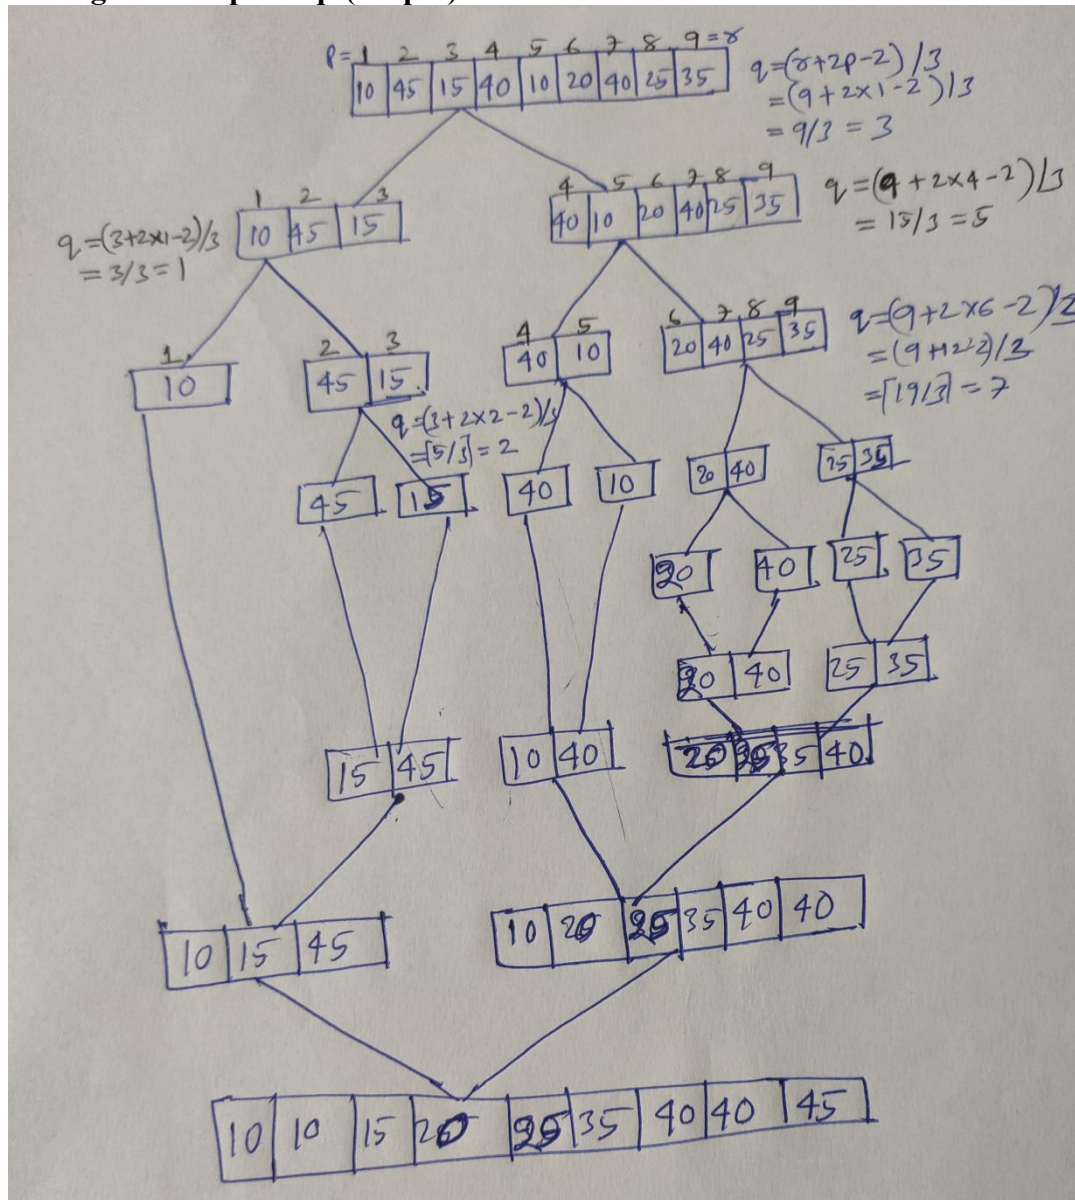 p=1 2 3 4 5 6 7 8 9=r
10 45 15 40 10 20 40 25 35
q=(r+2p-2)/3
=(9+2×1-2)/3
=9/3=3
1 2 3
10 45 15
q=(3+2×1-2)/3
=3/3=1
4 5 6 7 8 9
40 10 20 40 25 35
q=(9+2×4-2)/3
=15/3=5
1
10
2 3
45 15
q=(3+2×2-2)/3
=⌈5/3⌉=2
4 5
40 10
6 7 8 9
20 40 25 35
q=(9+2×6-2)/3
=(9+12-2)/3
=⌈19/3⌉=7
45
15
40
10
20 40
25 35
20
40
25
35
20 40
25 35
15 45
10 40
20 25 35 40
10 15 45
10 20 25 35 40 40
10 10 15 20 25 35 40 40 45